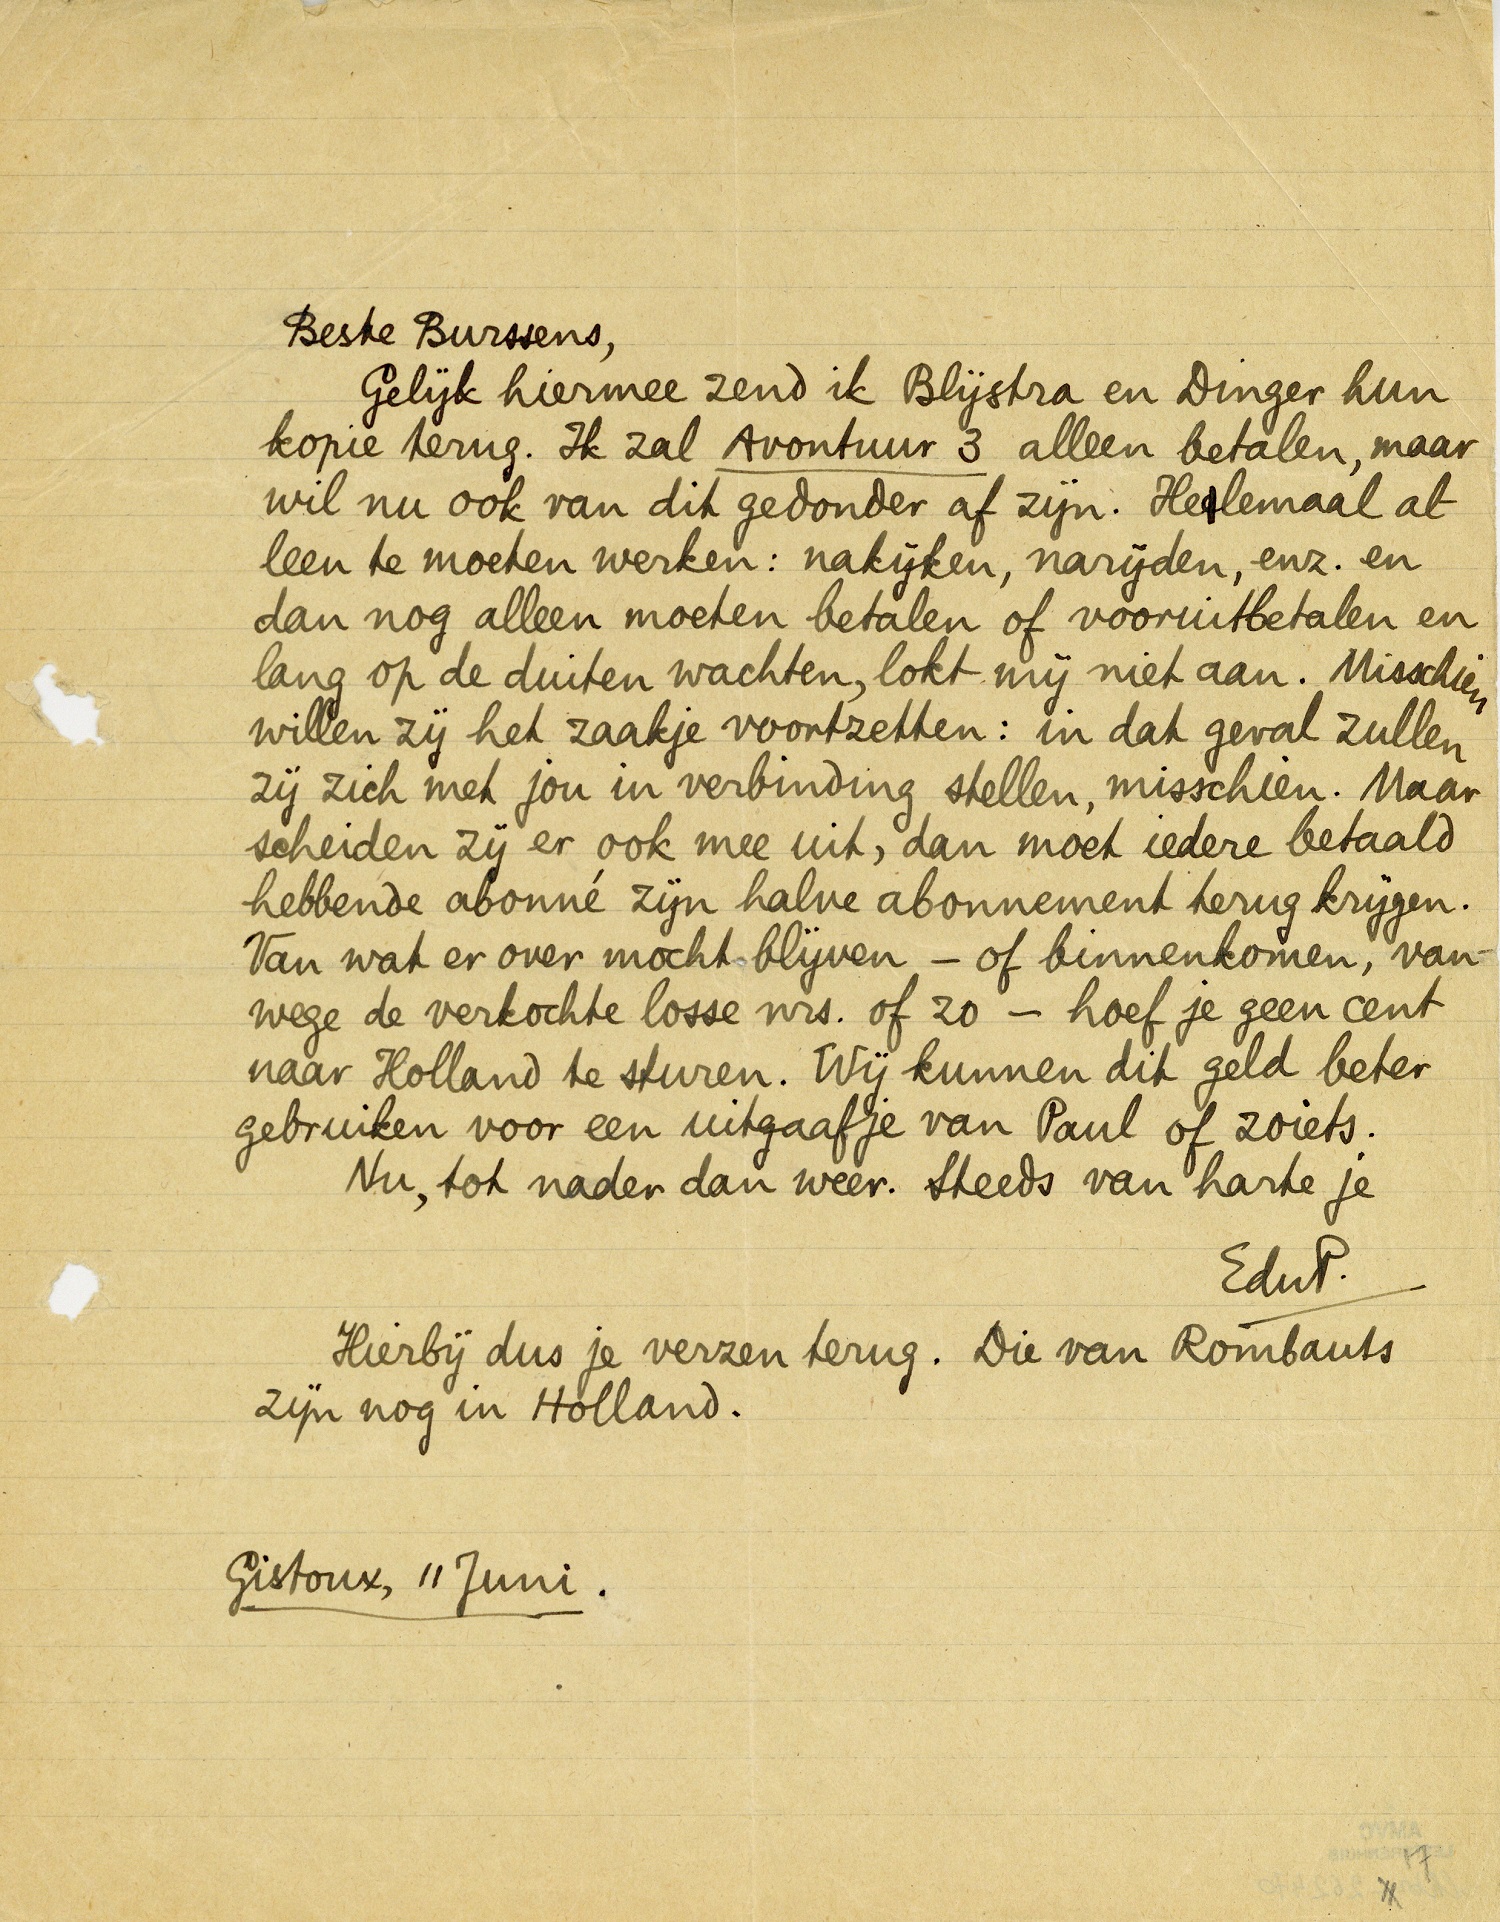 Beste Burssens,
Gelijk hiermee zend ik Blijstra en Dinger hun
kopie terug. Ik zal Avontuur 3 alleen betalen, maar
wil nu ook van dit gedonder af zijn. Helemaal al
leen te moeten werken: nakijken, narijden, enz. en
dan nog alleen moeten betalen of vooruitbetalen en
lang op de duiten wachten, lokt mij niet aan. Misschien
willen zij het zaakje voortzetten: in dat geval zullen
zij zich met jou in verbinding stellen, misschien. Maar
scheiden zij er ook mee uit, dan moet iedere betaald
hebbende abonné zijn halve abonnement terug krijgen.
Van wat er over mocht blijven – of binnenkomen, van-
wege de verkochte losse nrs. of zo – hoef je geen cent
naar Holland te sturen. Wij kunnen dit geld beter
gebruiken voor een uitgaafje van Paul of zoiets.
Nu, tot nader dan weer. Steeds van harte je
EduP.
Hierbij dus je verzen terug. Die van Rombauts
zijn nog in Holland.
Gistoux, 11 Juni.
AMVC
17